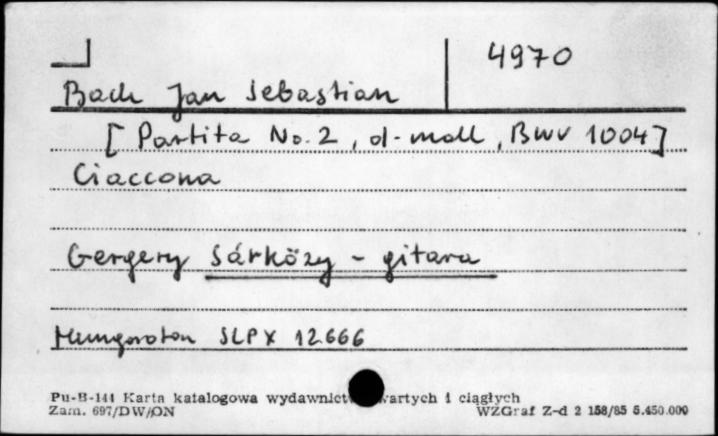 4970
Bach Jan Sebastian
[Partita No. 2, d-moll, BWV 1004]
Ciaccona
Gergery Sárközy - gitara
Hungaroton SLPX 12666
Pu-B-144 Karta katalogowa wydawnict wartych i ciągłych
Zam. 697/DW/ON WZGraf Z-d 2 158/85 5.450.000